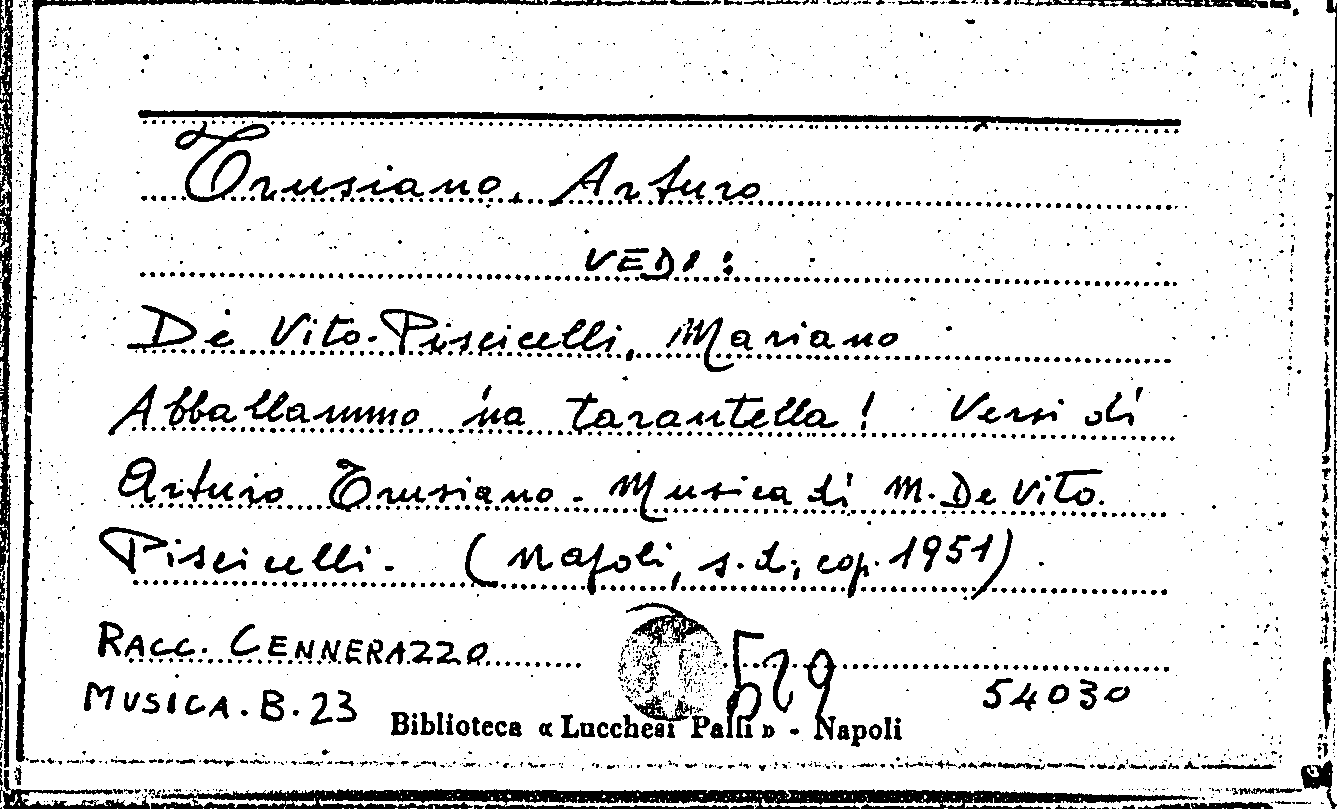 Trusiano, Arturo
VEDI:
De Vito-Piscicelli, Mariano
Abballammo 'na tarantella! Versi di
Arturo Trusiano. Musica di M. De Vito-
Piscicelli. (Napoli, s.d., cop. 1951).
RACC. CENNERAZZO
529
MUSICA.B.23
54030
Biblioteca « Lucchesi Palli » - Napoli